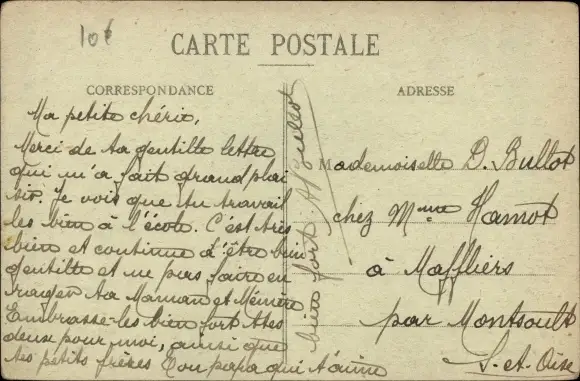 10€
CARTE POSTALE
CORRESPONDANCE
ADRESSE
Ma petite chérie,
Merci de ta gentille lettre
qui m'a fait grand plai
sir. Je vois que tu travail
les bien à l'école. C'est très
bien et continue à être bien
gentille et ne pas faire en
rager ta Maman et Mémère
Embrasse-les bien fort ttes
deux pour moi, ainsi que
tes petits frères Ton papa qui t'aime
bien fort.
Mademoiselle D. Bullot
chez Mme Hamot
à Maffliers
par Montsoult
S.-et-Oise